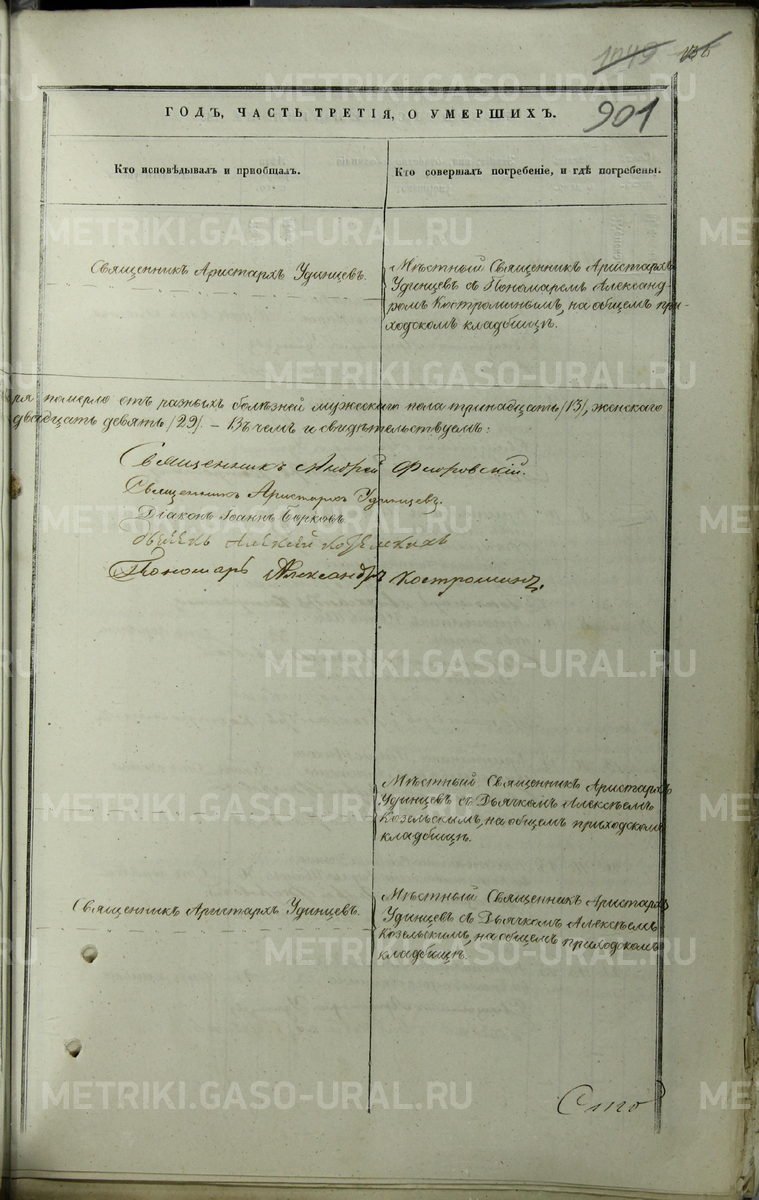 1049
136
901
ГОДЪ, ЧАСТЬ ТРЕТІЯ, О УМЕРШИХЪ.
Кто исповѣдывалъ и приобщалъ.
Кто совершалъ погребеніе, и гдѣ погребены.
METRIKI.GASO-URAL.RU
Священникъ Аристархъ Удинцевъ.
Мѣстный Священникъ Аристархъ
Удинцевъ съ Пономаремъ Александ-
ромъ Костроминымъ, на общемъ при-
ходскомъ кладбищѣ.
METRIKI.GASO-URAL.RU
ря померло отъ разныхъ болѣзней мужескаго пола тринадцать /13/, женскаго
двадцать девять /29/. – Въ чемъ и свидѣтельствуемъ:
Священникъ Андрей Фиоровскій.
Священникъ Аристархъ Удинцевъ.
Діаконъ Іоаннъ Борковъ
METRIKI.GASO-URAL.RU
Алексѣй
Пономарь Александръ Костроминъ.
METRIKI.GASO-URAL.RU
Мѣстный Священникъ Аристархъ
Удинцевъ съ Дьячкомъ Алексѣемъ
Козельскимъ, на общемъ приходскомъ
кладбищѣ.
METRIKI.GASO-URAL.RU
Священникъ Аристархъ Удинцевъ.
Мѣстный Священникъ Аристархъ
Удинцевъ съ Дьячкомъ Алексѣемъ
Козельскимъ, на общемъ приходскомъ
кладбищѣ.
METRIKI.GASO-URAL.RU
METRIKI.GASO-URAL.RU
Сто